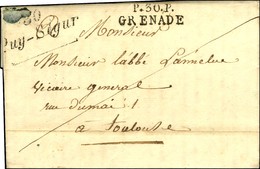 30
Puy-Ségur
P.30.P.
GRENADE
Monsieur
Monsieur l'abbé
Vicaire general
rue
à toulouse